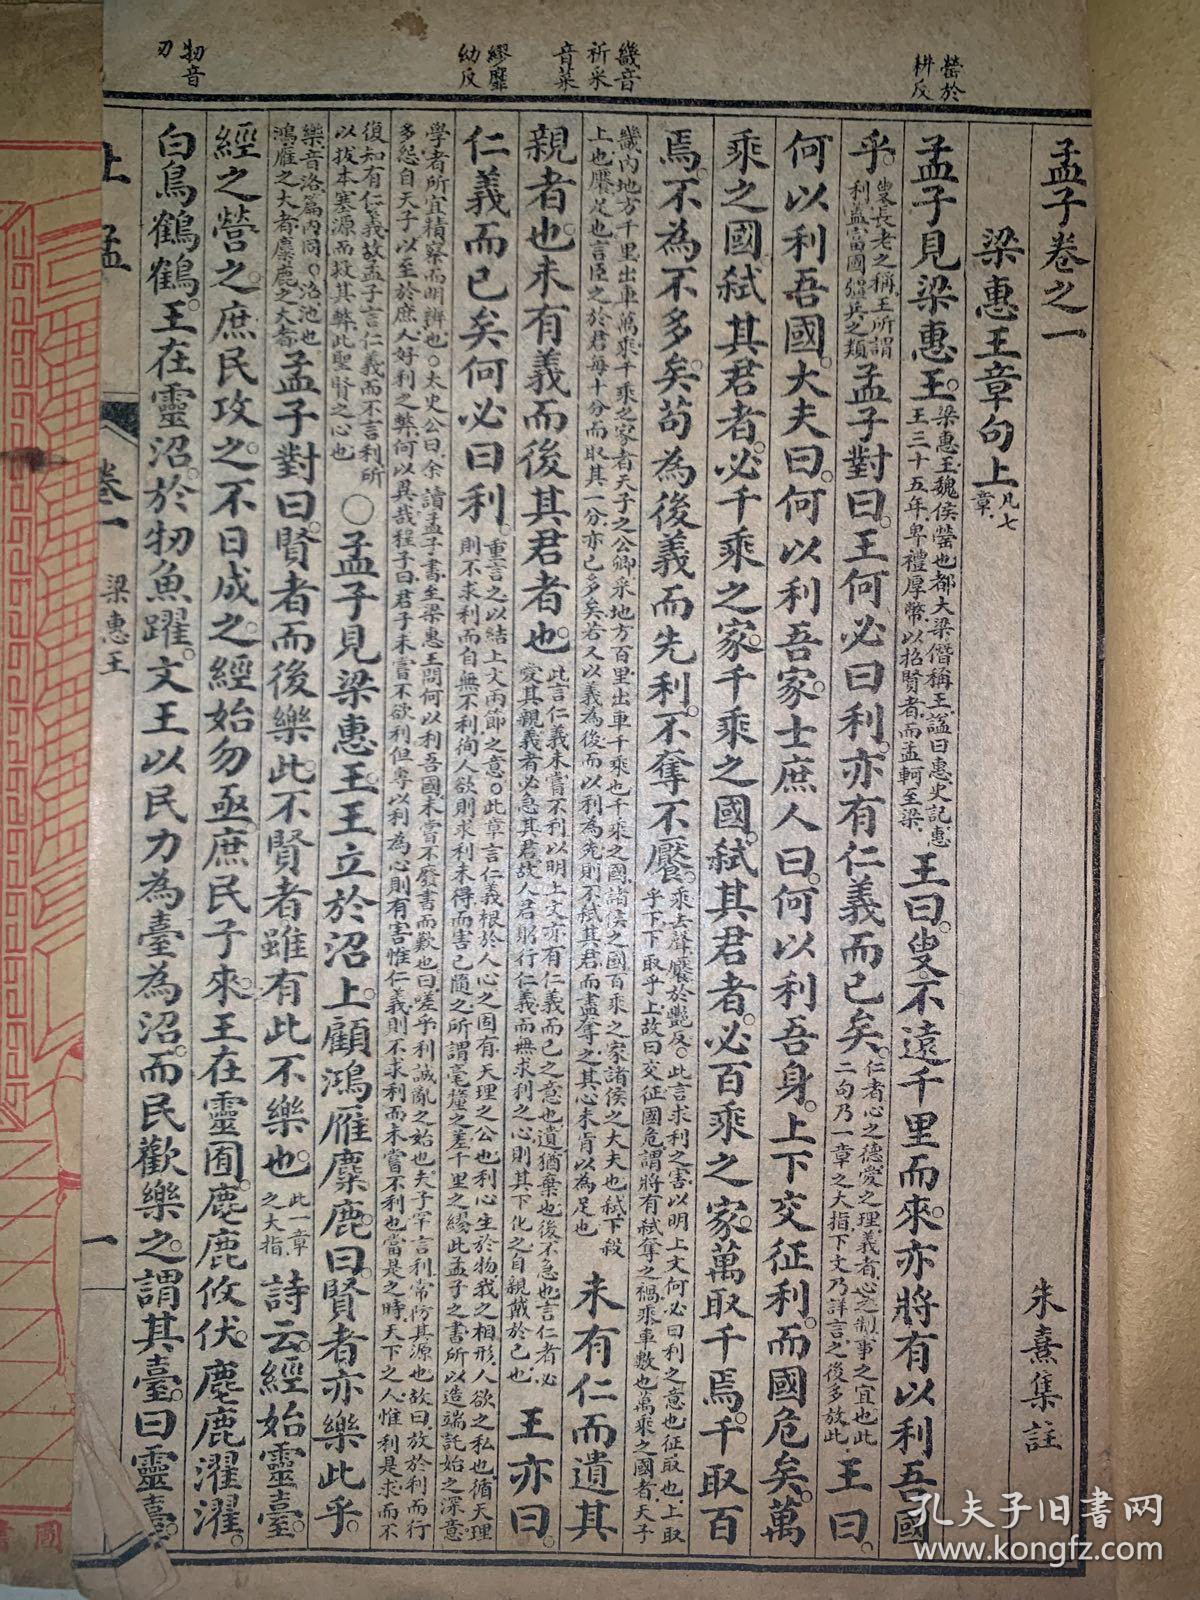 罃於
耕反
畿音
祈采
音菜
繆靡
幼反
牣音
刃
孟子卷之一
朱熹集註
梁惠王章句上
凡七
章
孟子見梁惠王。
梁惠王魏侯罃也都大梁僭稱王謚曰惠史記惠
王三十五年卑禮厚幣以招賢者而孟軻至梁
王曰。叟不遠千里而來。亦將有以利吾國
乎。
叟長老之稱王所謂
利蓋富國彊兵之類
孟子對曰。王何必曰利。亦有仁義而已矣。
仁者心之德愛之理義者心之制事之宜也此
二句乃一章之大指下文乃詳言之後多放此
王曰。
何以利吾國。大夫曰。何以利吾家。士庶人曰。何以利吾身。上下交征利。而國危矣。萬
乘之國弒其君者。必千乘之家。千乘之國。弒其君者。必百乘之家。萬取千焉。千取百
焉。不為不多矣。苟為後義而先利。不奪不饜。
乘去聲饜於艷反。此言求利之害以明上文何必曰利之意也征取也上取
乎下下取乎上故曰交征國危謂將有弒奪之禍乘車數也萬乘之國者天子
畿內地方千里出車萬乘千乘之家者天子之公卿采地方百里出車千乘也千乘之國諸侯之國百乘之家諸侯之大夫也弒下殺
上也饜足也言臣之於君每十分而取其一分亦已多矣若又以義為後而以利為先則不弒其君而盡奪之其心未肯以為足也
未有仁而遺其
親者也。未有義而後其君者也。
此言仁義未嘗不利以明上文亦有仁義而已之意也遺猶棄也後不急也言仁者必
愛其親義者必急其君故人君躬行仁義而無求利之心則其下化之自親戴於己也
王亦曰。
仁義而已矣何必曰利。
重言之以結上文兩節之意。此章言仁義根於人心之固有天理之公也利心生於物我之相形人欲之私也循天理
則不求利而自無不利徇人欲則求利未得而害已隨之所謂毫釐之差千里之繆此孟子之書所以造端託始之深意
學者所宜精察而明辨也。太史公曰余讀孟子書至梁惠王問何以利吾國未嘗不廢書而歎也曰嗟乎利誠亂之始也夫子罕言利常防其源也故曰放於利而行
多怨自天子以至於庶人好利之弊何以異哉程子曰君子未嘗不欲利但專以利為心則有害惟仁義則不求利而未嘗不利也當是之時天下之人惟利是求而不
復知有仁義故孟子言仁義而不言利所
以拔本塞源而救其弊此聖賢之心也
○孟子見梁惠王。王立於沼上。顧鴻雁麋鹿。曰。賢者亦樂此乎。
樂音洛篇內同。沼池也
鴻雁之大者麋鹿之大者
孟子對曰。賢者而後樂此。不賢者雖有此不樂也。
此一章
之大指
詩云。經始靈臺。
經之營之。庶民攻之。不日成之。經始勿亟。庶民子來。王在靈囿。麀鹿攸伏。麀鹿濯濯。
白鳥鶴鶴。王在靈沼。於牣魚躍。文王以民力為臺為沼。而民歡樂之。謂其臺。曰靈臺。
上孟
卷一
梁惠王
一
圖
孔夫子旧书网
www.kongfz.com